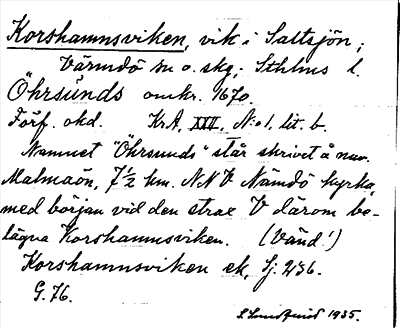 Korshamnsviken, vik i Saltsjön;
Värmdö sn o. skg; Sthlms l.
Öhrsunds omkr. 1670.
Förf. okd. KrA, XXII, N:o 1, lit. b.
Namnet "Öhrsunds" står skrivet å nav.
Malmaön, 7½ km. NNV Nämdö kyrka,
med början vid den strax V därom be-
lägna Korshamnsviken. (Vänd!)
Korshamnsviken ek, Sj. 236.
G. 76.
1935.